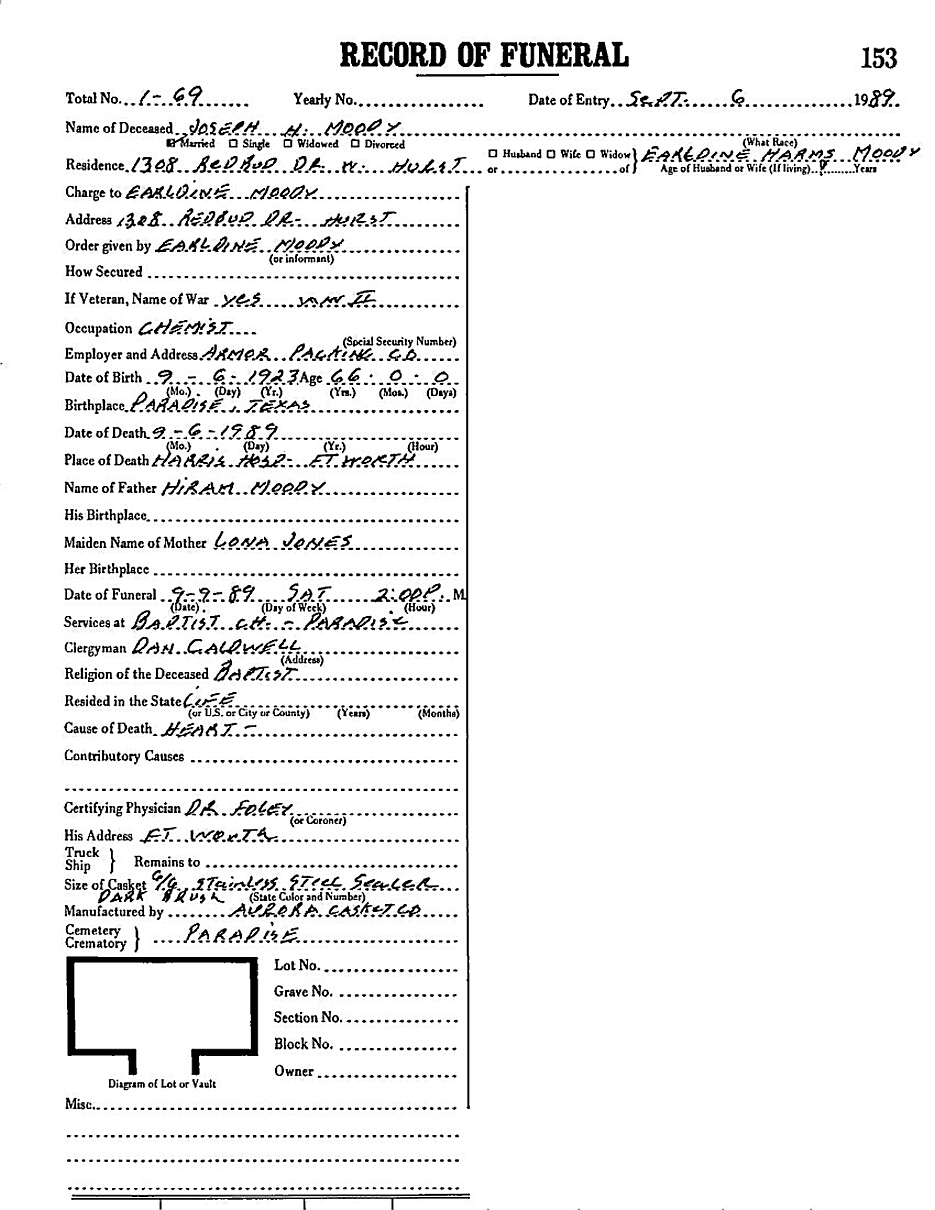 RECORD OF FUNERAL 153
Total No. 1-69 Yearly No. Date of Entry SEPT. 6 1989.
Name of Deceased JOSEPH H. MOODY
Married Single Widowed Divorced (What Race)
Residence 1308 REDBUD DR. W. HURST Husband Wife Widow or of EARLDINE HARMS MOODY
Age of Husband or Wife (If living) ? Years
Charge to EARLDINE MOODY
Address 1308 REDBUD DR- HURST
Order given by EARLDINE MOODY
(or informant)
How Secured
If Veteran, Name of War YES WW II
Occupation CHEMIST
(Social Security Number)
Employer and Address ARMOR PACKING CO
Date of Birth 9 - 6 - 1923 Age 66 - 0 - 0
(Mo.) (Day) (Yr.) (Yrs.) (Mos.) (Days)
Birthplace PARADISE, TEXAS
Date of Death 9-6-1989
(Mo.) (Day) (Yr.) (Hour)
Place of Death HARRIS HOSP- FT WORTH
Name of Father HIRAM MOODY
His Birthplace
Maiden Name of Mother LONA JONES
Her Birthplace
Date of Funeral 9-9-89 SAT 2:00 P. M.
(Date) (Day of Week) (Hour)
Services at BAPTIST CH. - PARADISE
Clergyman DAN CALDWELL
(Address)
Religion of the Deceased BAPTIST
Resided in the State LIFE
(or U.S. or City or County) (Years) (Months)
Cause of Death HEART -
Contributory Causes
Certifying Physician DR FOLEY
(or Coroner)
His Address FT WORTH
Truck
Ship } Remains to
Size of Casket 6/6 STAINLESS STEEL SEALER
DARK BRUSH (State Color and Number)
Manufactured by AURORA CASKET CO
Cemetery
Crematory } PARADISE
Lot No.
Grave No.
Section No.
Block No.
Owner
Diagram of Lot or Vault
Misc.